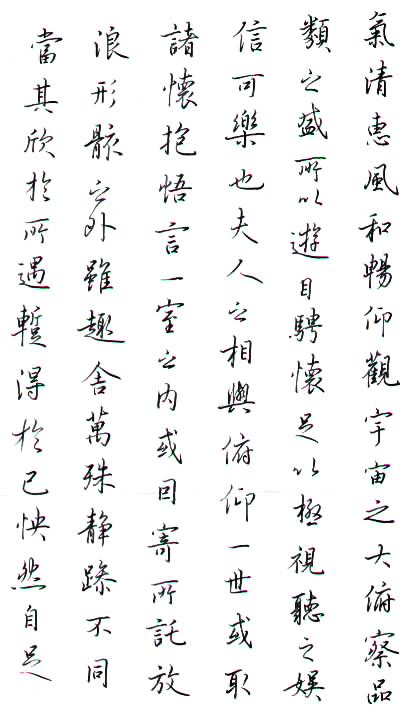 氣清惠風和暢仰觀宇宙之大俯察品
類之盛所以遊目騁懷足以極視聽之娛
信可樂也夫人之相與俯仰一世或取
諸懷抱悟言一室之內或因寄所託放
浪形骸之外雖趣舍萬殊靜躁不同
當其欣於所遇蹔得於己怏然自足